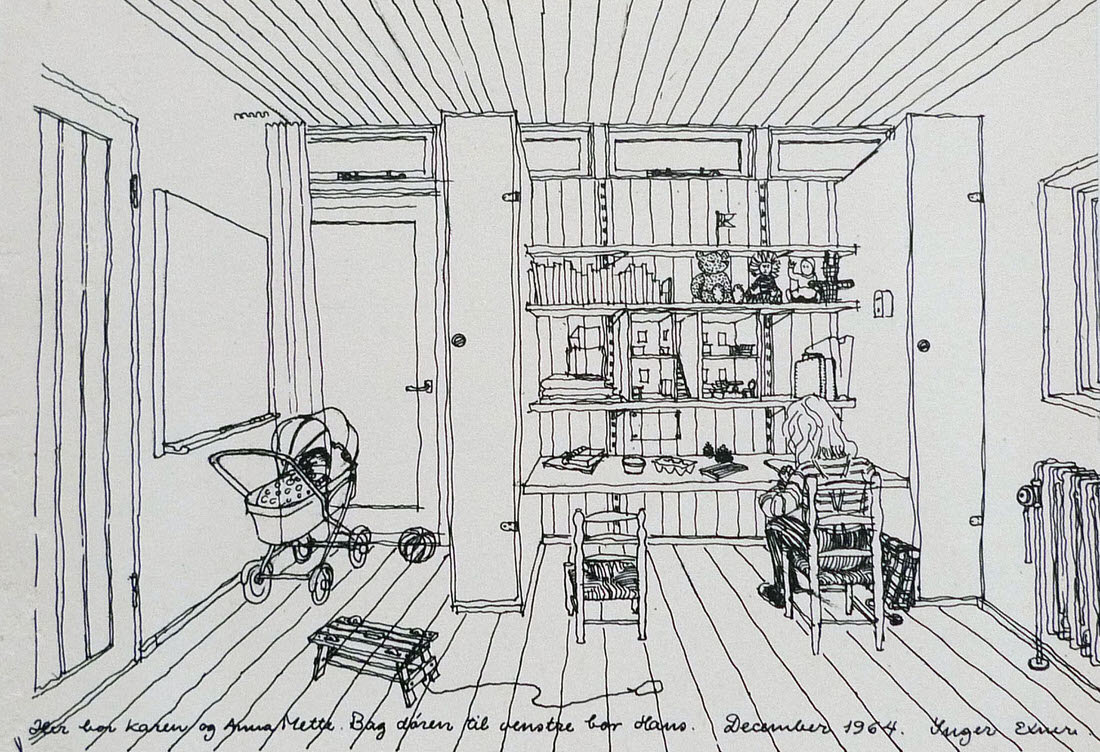 Her bor Karen og Anna Mette. Bag døren til venstre bor Hans. December 1964. Inger Exner.